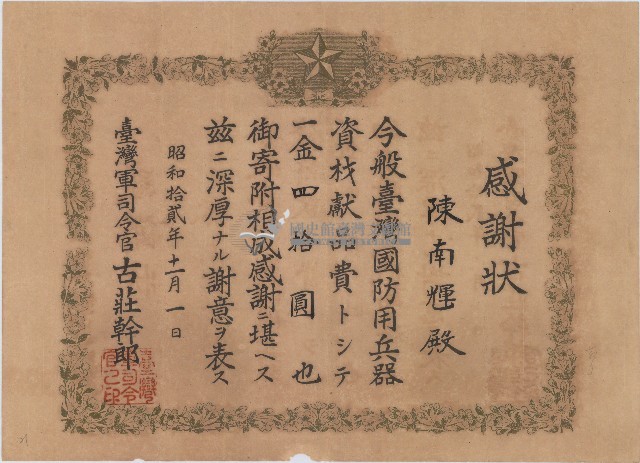 感謝狀
陳南輝殿
今般臺灣國防用兵器
資材獻品費トシテ
一金四拾圓也
御寄附相成感謝ニ堪ヘス
玆ニ深厚ナル謝意ヲ表ス
昭和拾貳年十一月一日
臺灣軍司令官 古莊幹郎
國史館臺灣文獻館